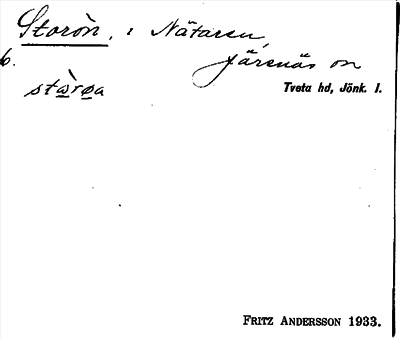 Storön, i Nätaren
Järsnäs sn
6.
Tveta hd, Jönk. l.
stɷ̀røa
FRITZ ANDERSSON 1933.